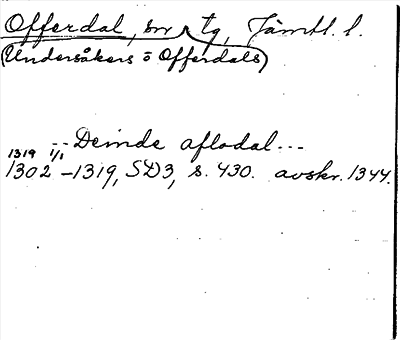 Offerdal, sn, tg, Jämtl. l.
(Undersåkers o Offerdals)
-- Deinde aflodal ---
1319 1/1
1302 -1319, SD3, s. 430. avskr. 1344.